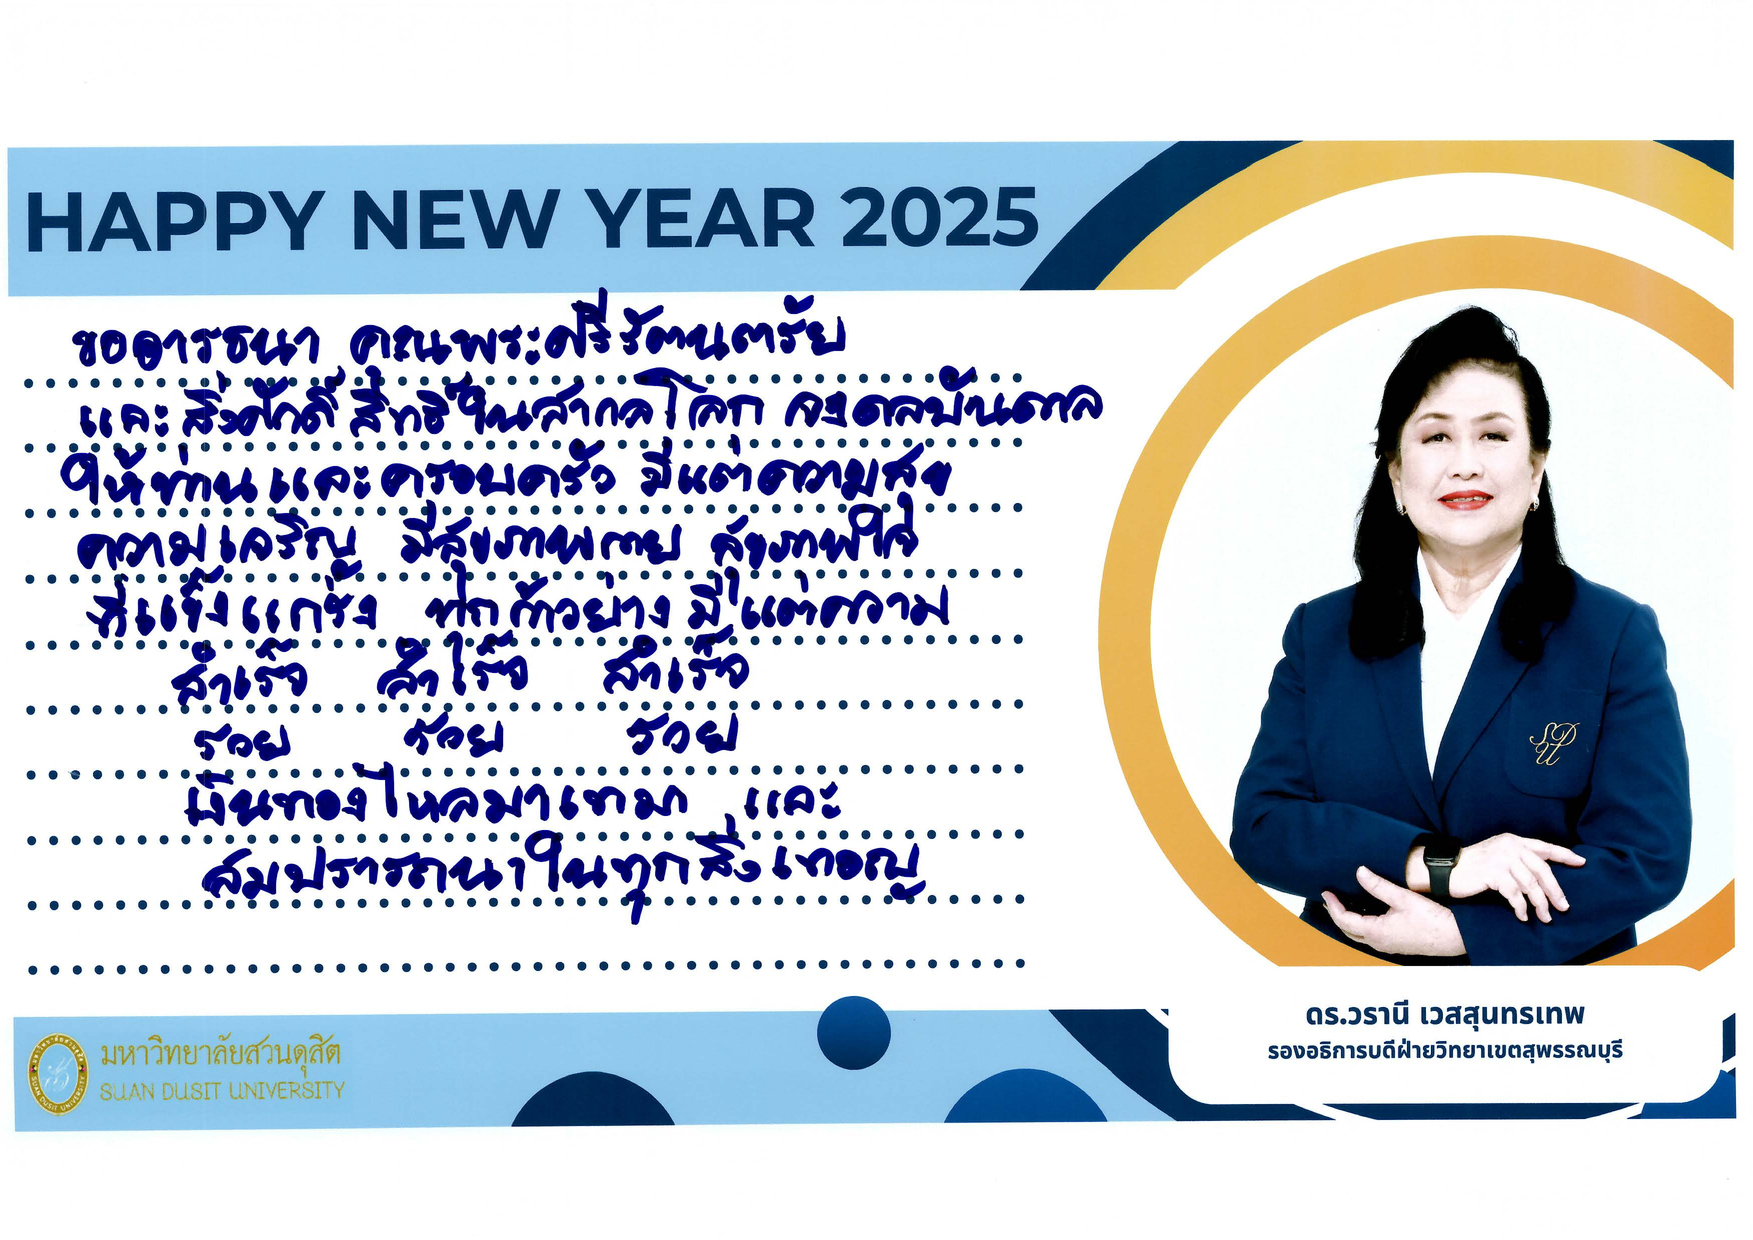 HAPPY NEW YEAR 2025
ขออาราธนา คุณพระศรีรัตนตรัย
และสิ่งศักดิ์สิทธิ์ในสากลโลก จงดลบันดาล
ให้ท่านและครอบครัว มีแต่ความสุข
ความเจริญ มีสุขภาพกาย สุขภาพใจ
ที่แข็งแกร่ง ทุกก้าวย่าง มีแต่ความ
สำเร็จ สำเร็จ สำเร็จ
รวย รวย รวย
เงินทองไหลมาเทมา และ
สมปรารถนาในทุกสิ่งเทอญ
ดร.วรานี เวสสุนทรเทพ
รองอธิการบดีฝ่ายวิทยาเขตสุพรรณบุรี
มหาวิทยาลัยสวนดุสิต
SUAN DUSIT UNIVERSITY
SDU